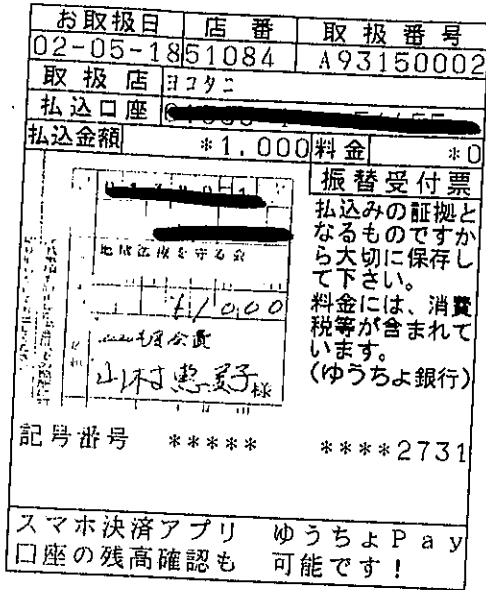 お取扱日 店番 取扱番号
02-05-18 51084 A93150002
取扱店 ヨコタニ
払込口座
払込金額 *1,000 料金 *0
振替受付票
払込みの証拠と
なるものですか
ら大切に保存し
て下さい。
料金には、消費
税等が含まれて
います。
(ゆうちょ銀行)
を守る会
山村恵美子様
記号番号 ***** ****2731
スマホ決済アプリ ゆうちょPay
口座の残高確認も 可能です!